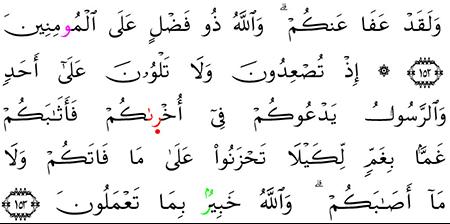 وَلَقَدْ عَفَا عَنكُمْ ۗ وَٱللَّهُ ذُو فَضْلٍ عَلَى ٱلْمُومِنِينَ
﴿١٥٢﴾ ۞ إِذْ تُصْعِدُونَ وَلَا تَلْوُۥنَ عَلَىٰٓ أَحَدٍ
وَٱلرَّسُولُ يَدْعُوكُمْ فِىٓ أُخْرِىٰكُمْ فَأَثَٰبَكُمْ
غَمًّۢا بِغَمٍّ لِّكَيْلَا تَحْزَنُوا۟ عَلَىٰ مَا فَاتَكُمْ وَلَا
مَآ أَصَٰبَكُمْ ۗ وَٱللَّهُ خَبِيرٌۢ بِمَا تَعْمَلُونَ ﴿١٥٣﴾